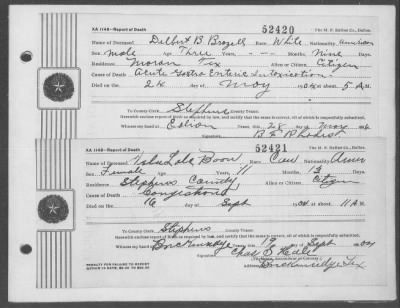 52420
XA 1148—Report of Death The M. P. Exline Co., Dallas.
Name of Deceased Delbert B. Brazell Race White Nationality American
Sex male Age Three Years, - - - Months, Nine Days.
Residence Moran Tex Alien or Citizen Citizen
Cause of Death Acute Gastro Enteric Intoxication
Died on the 24 day of May 190 at about 5 A M.
To County Clerk, Stephens County Texas:
Herewith enclose report of death as required by law, and certify the same to be correct, with the request that the same be recorded.
Witness my hand at this 28 day of
Signature
52421
XA 1148—Report of Death The M. P. Exline Co., Dallas.
Name of Deceased Lola Boon Race Cau Nationality Amer
Sex Female Age 11 Months, 13 Days.
Residence Stephens County Alien or Citizen Citizen
Cause of Death
Died on the 16 day of Sept 190 at about 11 A M.
To County Clerk, Stephens County Texas:
Herewith enclose report of death as required by law, and certify the same to be correct, with the request that the same be recorded.
Witness my hand at Breckenridge this 19 day of Sept
Signature Chas
Breckenridge Tex
PENALTY FOR FAILURE TO REPORT